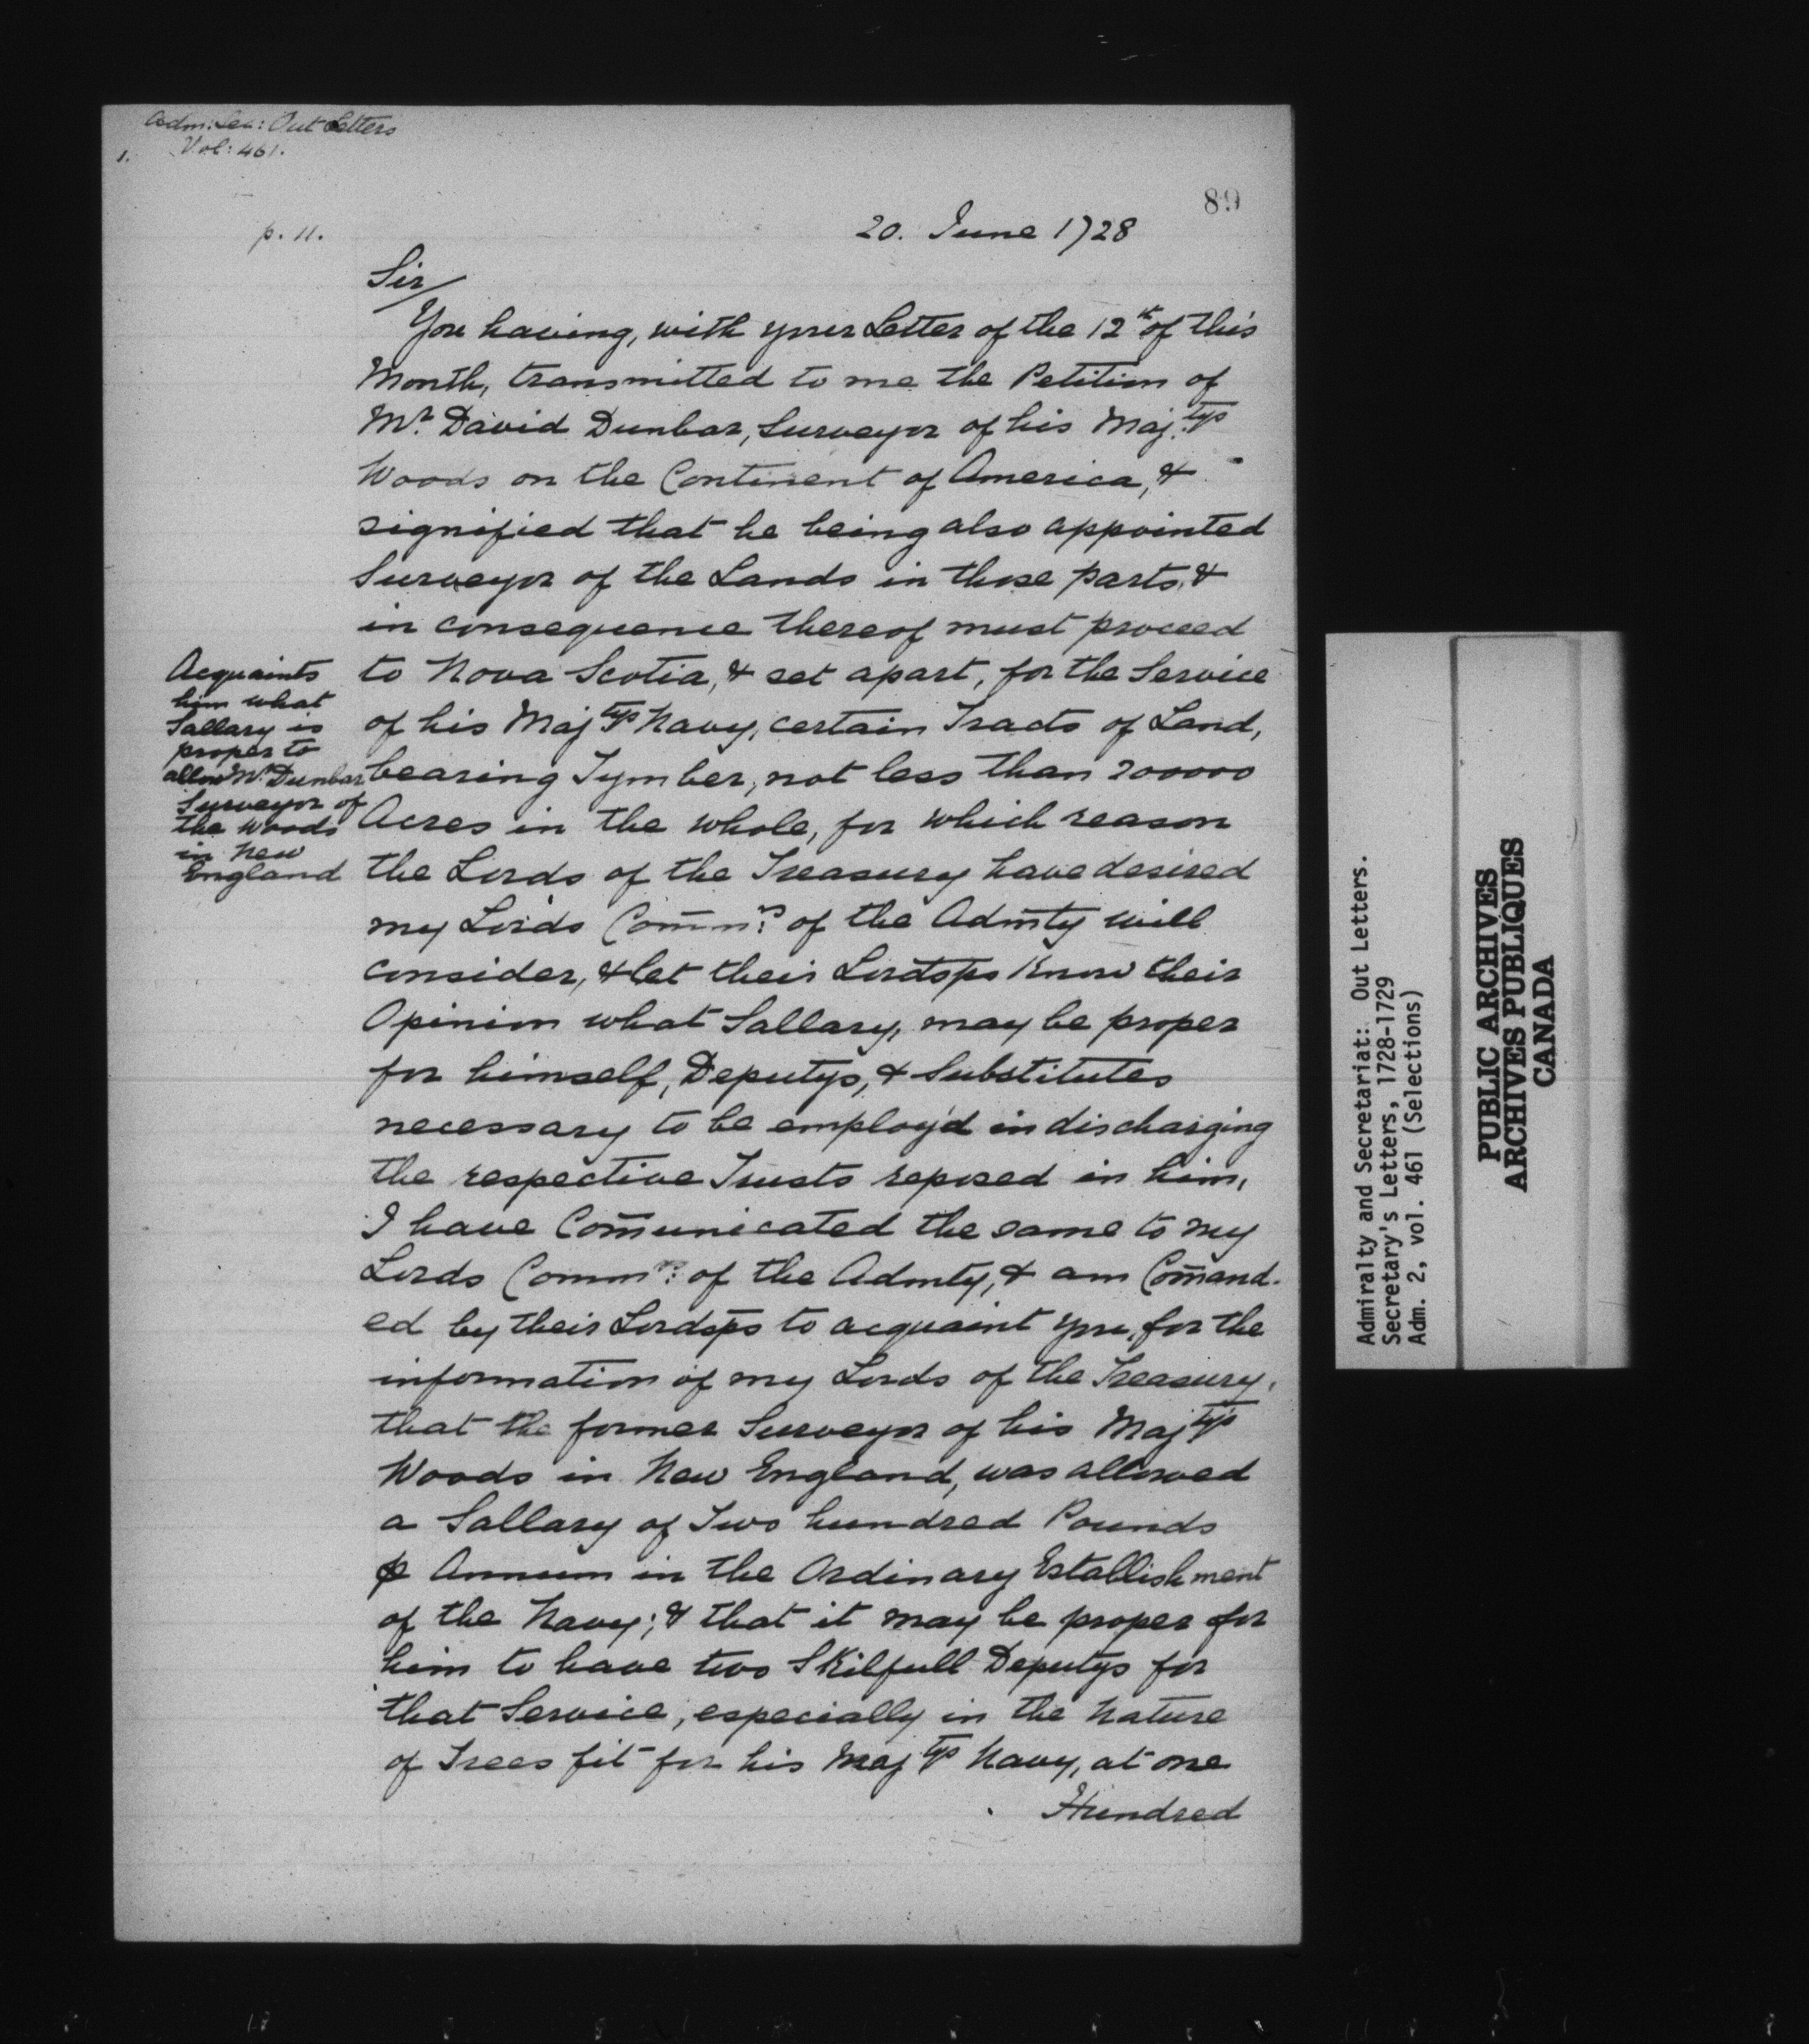 Adm: Sec: Out Letters
1. Vol: 461.
89
p. 11.
20. June 1728
Sir/
You having, with your Letter of the 12th of this
Month, transmitted to me the Petition of
Mr. David Dunbar, Surveyor of his Maj.tys
Woods on the Continent of America, &
signified that he being also appointed
Surveyor of the Lands in those parts, &
in consequence thereof must proceed
to Nova Scotia, & set apart, for the Service
of his Majtys Navy, certain Tracts of Land,
bearing Tymber, not less than 200000
Acres in the whole, for which reason
the Lords of the Treasury have desired
my Lords Com̄n.rs of the Admty will
consider, & let their Lordsps know their
Opinion what Sallary, may be proper
for himself, Deputys, & Substitutes
necessary to be employ'd in discharging
the respective Trusts reposed in him,
I have Com̄unicated the same to my
Lords Commrs: of the Admty, & am Com̄and-
ed by their Lordsps to acquaint you, for the
information of my Lords of the Treasury,
that the former Surveyor of his Majtys
Woods in New England, was allowed
a Sallary of Two hundred Pounds
⅌ Annum in the Ordinary Establishment
of the Navy; & that it may be proper for
him to have two Skilfull Deputys for
that Service, especially in the Nature
of Trees fit for his Majtys Navy, at one
Hundred
Acquaints
him what
Sallary is
proper to
allow Mr. Dunbar
Surveyor of
the Woods
in New
England
Admiralty and Secretariat: Out Letters.
Secretary's Letters, 1728-1729
Adm. 2, vol. 461 (Selections)
PUBLIC ARCHIVES
ARCHIVES PUBLIQUES
CANADA